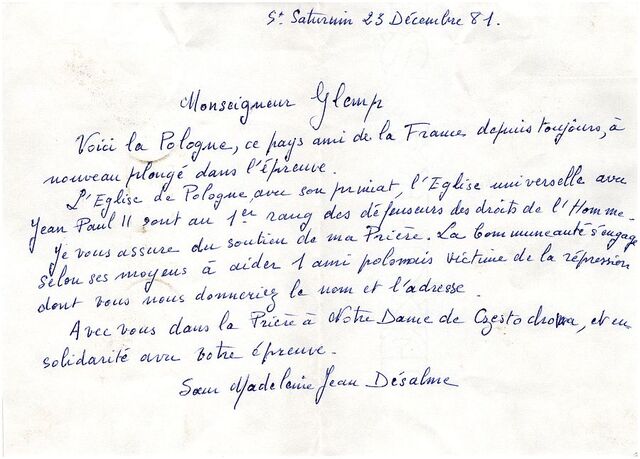 St Saturnin 23 Décembre 81.
Monseigneur Glemp
Voici la Pologne, ce pays ami de la France depuis toujours, à
nouveau plongé dans l'épreuve.
L'Eglise de Pologne avec son primat, l'Eglise universelle avec
Jean Paul II sont au 1er rang des défenseurs des droits de l'Homme.
Je vous assure du soutien de ma Prière. La Communeauté s'engage
selon ses moyens à aider 1 ami polonais victime de la répression
dont vous nous donneriez le nom et l'adresse.
Avec vous dans la Prière à Notre Dame de Czestochowa, et en
solidarité avec votre épreuve.
Sœur Madeleine Jean Désalme